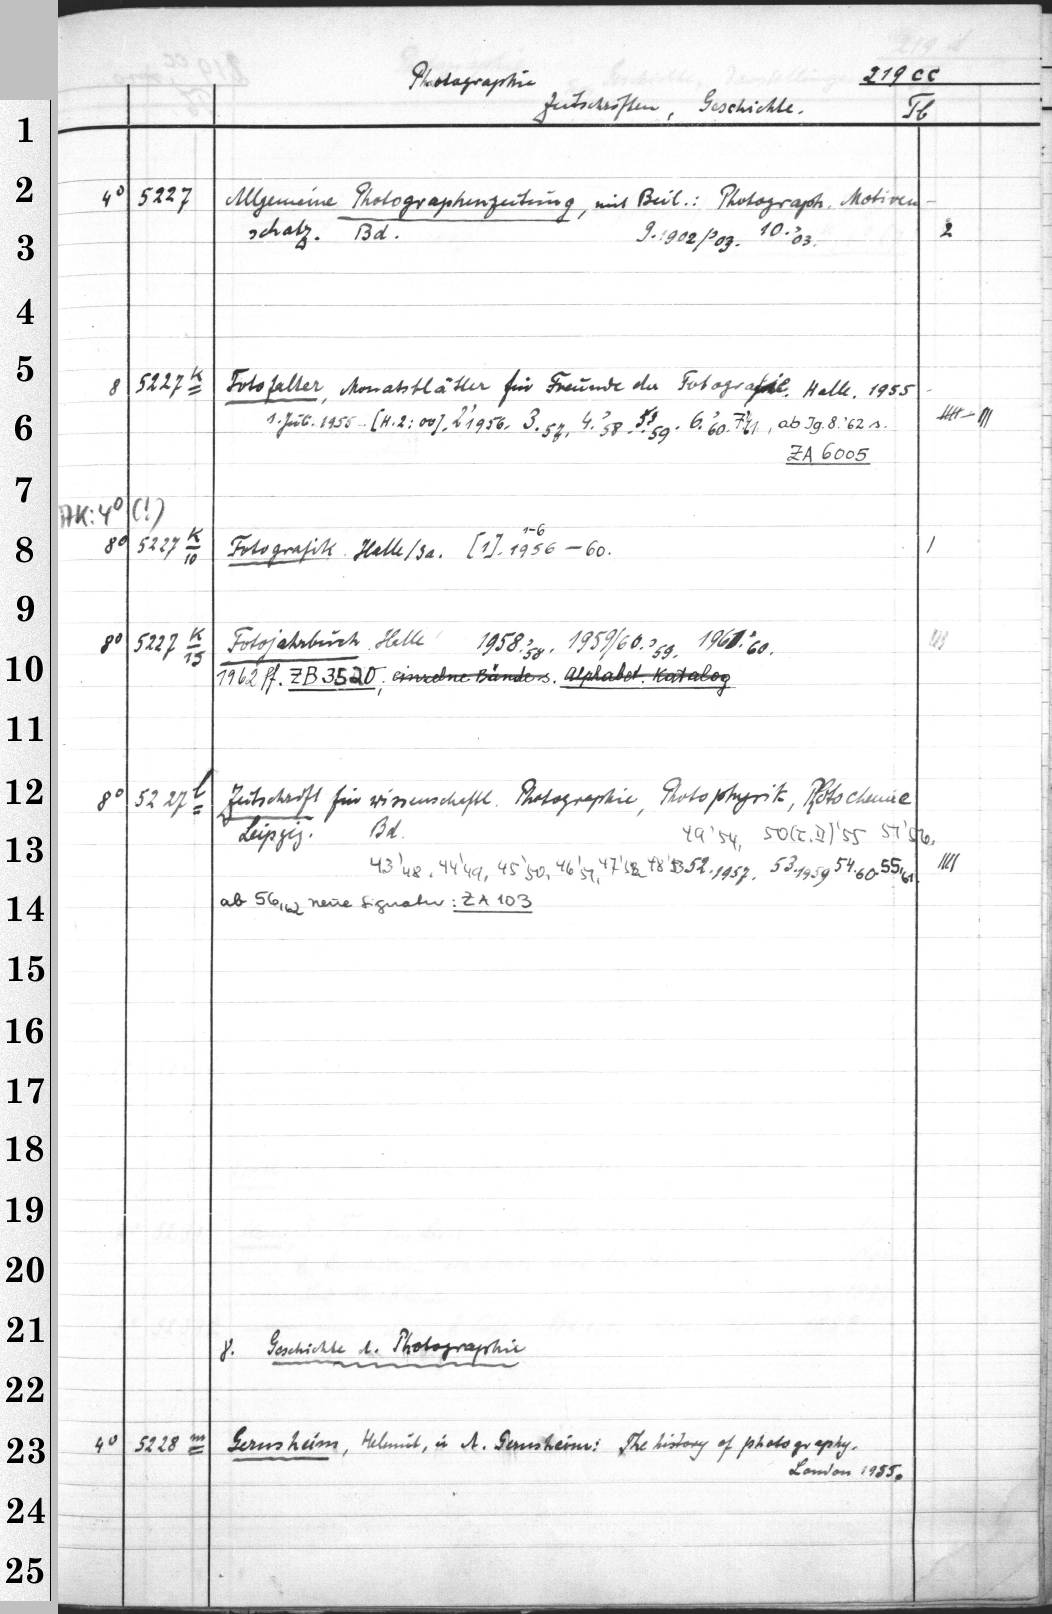 Photographie 219 cc
Zeitschriften, Geschichte. Tb
1
2 4° 5227 Allgemeine Photographenzeitung, mit Beil.: Photograph. Motiven-
3 schatz. Bd. 9.1902/'03. 10.'03. 2
4
5 8 5227 k Fotofalter, Monatsblätter für Freunde der Fotografie. Halle. 1955
6 1. Jub. 1955 [H.2:00], 2'1956. 3.'57, 4.'58. 5'59. 6.'60. 7'61, ab Jg. 8.'62 s.
ZA 6005
7 AK: 4° (!)
8 8° 5227 K/10 Fotografik. Halle/Sa. [1]. 1956 1-6 – 60.
9
8° 5227 K/15 Fotojahrbuch. Halle 1958.'58. 1959/60.'59. 1961.'60.
10 1962 ff. ZB 3520, einzelne Bände s. Alphabet. Katalog
11
12 8° 5227 l Zeitschrift für wissenschaftl. Photographie, Photophysik, Photochemie
Leipzig. Bd. 49'54, 50(T.II)'55 51'56.
13 43'48. 44'49, 45'50, 46'51, 47'52 48'53 52.1957. 53.1959 54.60. 55,61.
14 ab 56,62 neue Signatur: ZA 103
15
16
17
18
19
20
21 8. Geschichte d. Photographie
22
23 4° 5228 m Gernsheim, Helmut, u. A. Gernsheim: The history of photography.
London 1955.
24
25